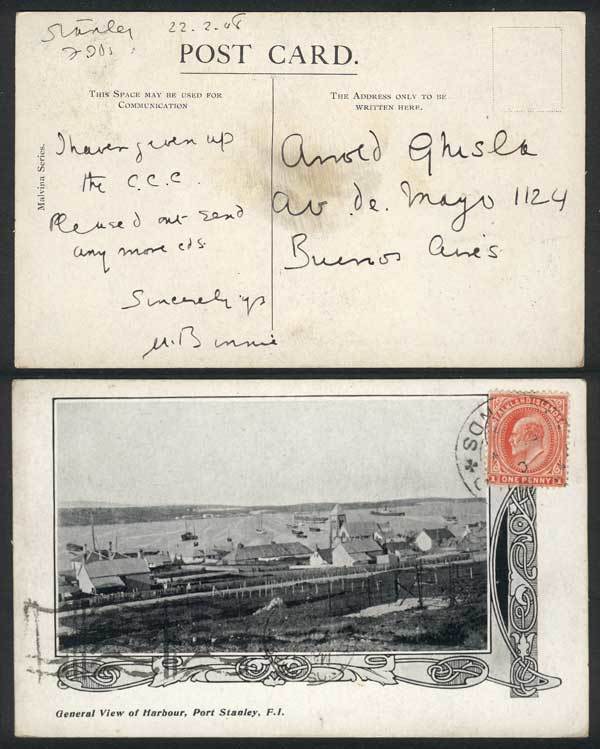 Stanley
22.2.08
POST CARD.
THIS SPACE MAY BE USED FOR
COMMUNICATION
THE ADDRESS ONLY TO BE
WRITTEN HERE.
Malvina Series.
I haven given up
the C.C.C.
Please d out send
any more cds
Sincerely yrs
M. Binnie
Arnold Ghisla
Av. de. Mayo 1124
Buenos Aires
FALKLAND ISLANDS
1 ONE PENNY 1
General View of Harbour, Port Stanley, F.I.